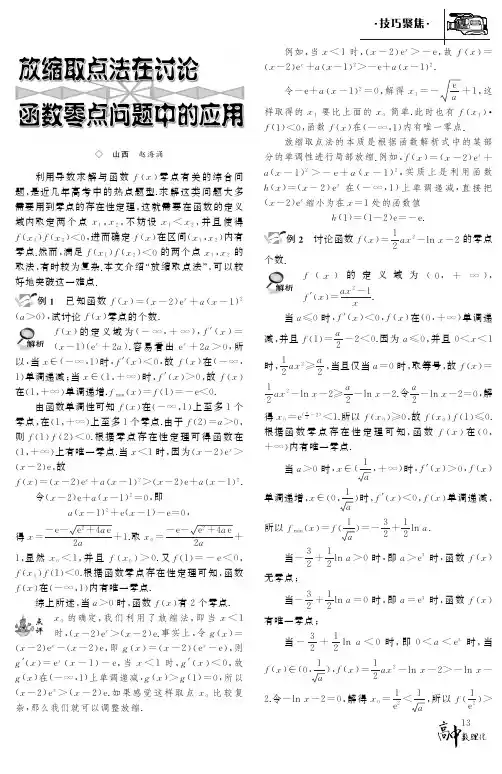 ·技巧聚焦·
放缩取点法在讨论
函数零点问题中的应用
◇ 山西 赵海涌
利用导数求解与函数 f(x)零点有关的综合问
题,是近几年高考中的热点题型.求解这类问题大多
需要用到零点的存在性定理.这就需要在函数的定义
域内取定两个点 x₁,x₂,不妨设 x₁<x₂,并且使得
f(x₁)f(x₂)<0,进而确定 f(x)在区间(x₁,x₂)内有
零点.然而,满足 f(x₁)f(x₂)<0 的两个点 x₁,x₂ 的
取法,有时较为复杂.本文介绍“放缩取点法”,可以较
好地突破这一难点.
例1 已知函数 f(x)=(x-2)eˣ+a(x-1)²
(a>0),试讨论 f(x)零点的个数.
解析
f(x)的定义域为(-∞,+∞),f′(x)=
(x-1)(eˣ+2a).容易看出 eˣ+2a>0,所
以,当 x∈(-∞,1)时,f′(x)<0,故 f(x)在(-∞,
1)单调递减;当 x∈(1,+∞)时,f′(x)>0,故 f(x)
在(1,+∞)单调递增.f_min(x)=f(1)=-e<0.
由函数单调性可知 f(x)在(-∞,1)上至多1个
零点,在(1,+∞)上至多1个零点.由于 f(2)=a>0,
则 f(1)f(2)<0.根据零点存在性定理可得函数在
(1,+∞)上有唯一零点.当 x<1 时,因为(x-2)eˣ>
(x-2)e,故
f(x)=(x-2)eˣ+a(x-1)²>(x-2)e+a(x-1)².
令(x-2)e+a(x-1)²=0,即
a(x-1)²+e(x-1)-e=0,
得 x=(-e-√(e²+4ae))/2a+1.取 x₀=(-e-√(e²+4ae))/2a+
1,显然 x₀<1,并且 f(x₀)>0.又 f(1)=-e<0,
f(x₀)f(1)<0.根据函数零点存在性定理可知,函数
f(x)在(-∞,1)内有唯一零点.
综上所述,当 a>0 时,函数 f(x)有2个零点.
点评
x₀ 的确定,我们利用了放缩法,即当 x<1
时,(x-2)eˣ>(x-2)e.事实上,令 g(x)=
(x-2)eˣ-(x-2)e,即 g(x)=(x-2)(eˣ-e),则
g′(x)=eˣ(x-1)-e,当 x<1 时,g′(x)<0,故
g(x)在(-∞,1)上单调递减,g(x)>g(1)=0,所以
(x-2)eˣ>(x-2)e.如果感觉这样取点 x₀ 比较复
杂,那么我们就可以调整放缩.
例如,当 x<1 时,(x-2)eˣ>-e,故 f(x)=
(x-2)eˣ+a(x-1)²>-e+a(x-1)².
令-e+a(x-1)²=0,解得 x₁=-√(e/a)+1,这
样取得的 x₁ 要比上面的 x₀ 简单.此时也有 f(x₁)·
f(1)<0,函数 f(x)在(-∞,1)内有唯一零点.
放缩取点法的本质是根据函数解析式中的某部
分的单调性进行局部放缩.例如,f(x)=(x-2)eˣ+
a(x-1)²>-e+a(x-1)²,实质上是利用函数
h(x)=(x-2)eˣ 在(-∞,1)上单调递减,直接把
(x-2)eˣ缩小为在 x=1 处的函数值
h(1)=(1-2)e=-e.
例2 讨论函数 f(x)=1/2ax²-ln x-2 的零点
个数.
解析
f(x)的定义域为(0,+∞),
f′(x)=(ax²-1)/x.
当 a≤0 时,f′(x)<0,f(x)在(0,+∞)单调递
减,并且 f(1)=a/2-2<0.因为 a≤0,并且 0<x<1
时,1/2ax²≥a/2,当且仅当 a=0 时,取等号,故 f(x)=
1/2ax²-ln x-2≥a/2-ln x-2.令a/2-ln x-2=0,解
得 x₀=e^(a/2-2)<1.所以 f(x₀)≥0,故 f(x₀)f(1)≤0.
根据函数零点存在性定理可知,函数 f(x)在(0,
+∞)内有唯一零点.
当 a>0 时,x∈(1/√a,+∞)时,f′(x)>0,f(x)
单调递增,x∈(0,1/√a)时,f′(x)<0,f(x)单调递减,
所以 f_min(x)=f(1/√a)=-3/2+1/2ln a.
当-3/2+1/2ln a>0 时,即 a>e³ 时,函数 f(x)
无零点;
当-3/2+1/2ln a=0 时,即 a=e³ 时,函数 f(x)
有唯一零点;
当-3/2+1/2ln a<0 时,即 0<a<e³ 时,当
f(x)∈(0,1/√a),f(x)=1/2ax²-ln x-2>-ln x-
2.令-ln x-2=0,解得 x₀=1/e²<1/√a,所以 f(1/e²)>
13
高中数理化